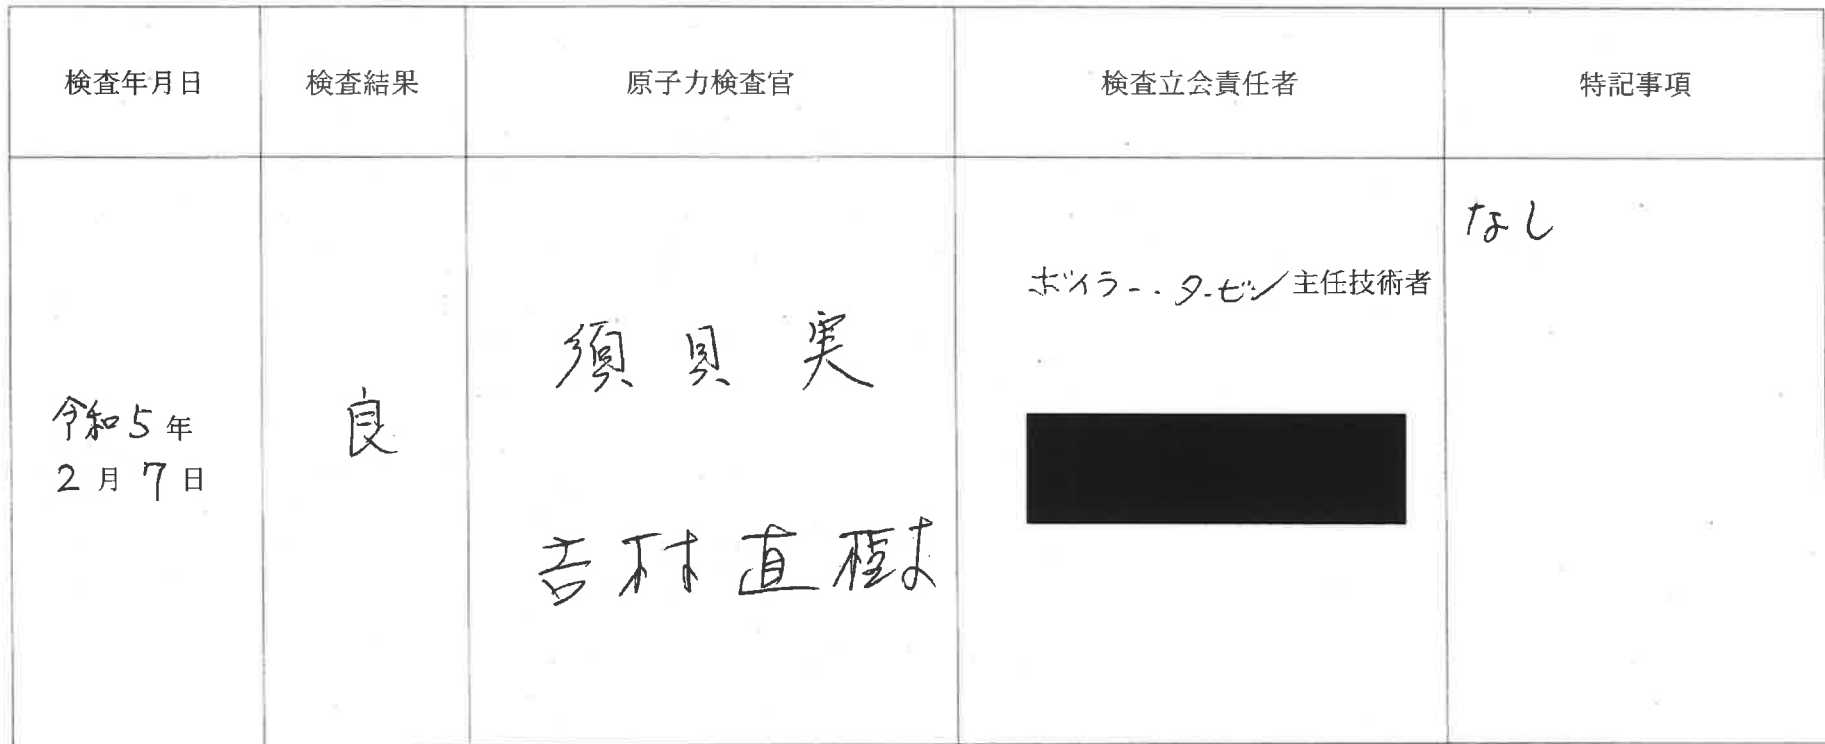 検査年月日
検査結果
原子力検査官
検査立会責任者
特記事項
令和5年
2月7日
良
須貝 実
吉村 直樹
ボイラー・タービン主任技術者
なし